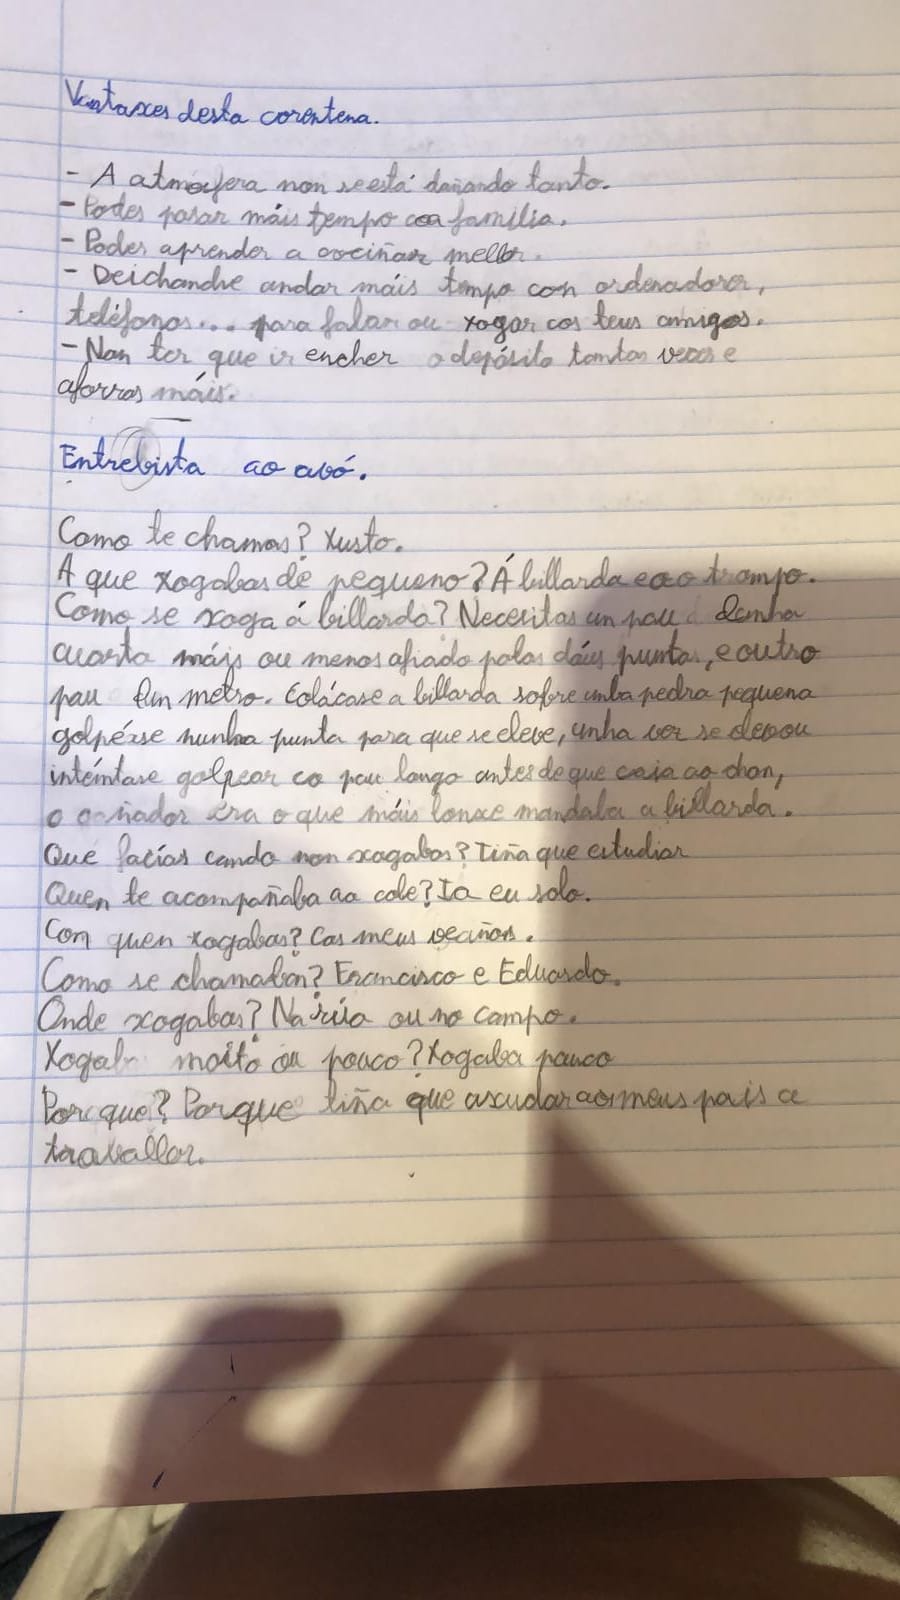 Vantaxes desta corentena.
- A atmosfera non se está dañando tanto.
- Podes pasar máis tempo coa familia.
- Podes aprender a cociñar mellor.
- Deichanche andar máis tempo con ordenadores,
teléfonos... para falar ou xogar cos teus amigos.
- Non ter que ir encher o depósito tantas veces e
aforras máis.
Entrebista ao avó.
Como te chamas? Xusto.
A que xogabas de pequeno? Á billarda e ao trompo.
Como se xoga á billarda? Necesitas un pau dunha
cuarta máis ou menos afiado polas dúas puntas, e outro
pau dun metro. Colócase a billarda sobre unha pedra pequena
golpéase nunha punta para que se eleve, unha vez se elevou
inténtase golpear co pau longo antes de que caia ao chan,
o era o que máis lonxe mandaba a billarda.
Que facías cando non xogabas? Tiña que estudiar
Quen te acompañaba ao cole? Ia eu solo.
Con quen xogabas? Cos meus veciños.
Como se chamaban? Francisco e Eduardo.
Onde xogabas? Na rúa ou no campo.
moito ou pouco? Xogaba pouco
Por que? Porque tiña que axudar aos meus pais a
traballar.